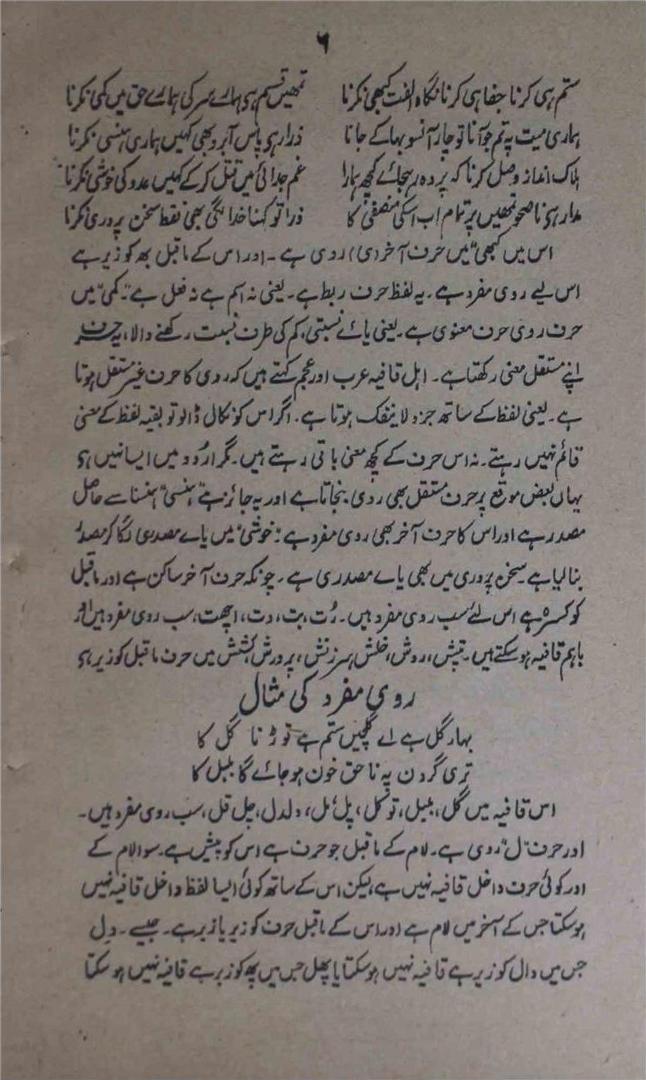 ۶
ستم ہی کرنا جفا ہی کرنا نگاہ الفت کبھی نکرنا تمھیں قسم ہے ہمارے سر کی ہمارے حق میں کمی نکرنا
ہماری میت پہ تم جو آنا تو چار آنسو بہا کے جانا ذرا رہے پاس آبرو بھی کہیں ہماری ہنسی نکرنا
ہلاک انداز وصل کرنا کہ پردہ رہجائے کچھ ہمارا غم جدائی میں قتل کر کے کہیں عدو کی خوشی نکرنا
مدار ہے ناصحو تمھیں پر تمام اب اسکی منصفی کا ذرا تو کہنا خدا لگی بھی فقط سخن پروری نکرنا
اس میں کبھی" میں حرف آخر (ی) روی ہے ۔ اور اس کے ماقبل بھ کو زیر ہے
اس لیے روی مفرد ہے۔ یہ لفظ حرف ربط ہے۔ یعنی نہ اسم ہے نہ فعل ہے۔ "کمی" میں
حرف روی حرف معنوی ہے۔ یعنی یائے نسبتی، کم کی طرف نسبت رکھنے والا، یہ حرف
اپنے مستقل معنی رکھتا ہے۔ اہل قافیہ عرب اور عجم کہتے ہیں کہ روی کا حرف غیر مستقل ہوتا
ہے۔ یعنی لفظ کے ساتھ جزو لاینفک ہوتا ہے۔ اگر اس کو نکال ڈالو تو بقیہ لفظ کے معنی
قائم نہیں رہتے۔ نہ اس حرف کے کچھ معنی باقی رہتے ہیں۔ مگر اردو میں ایسا نہیں ہے
یہاں بعض موقع پر حرف مستقل بھی روی بنجاتا ہے اور یہ جائز ہے "ہنسی" ہنسنا سے حاصل
مصدر ہے اور اس کا حرف آخر بھی روی مفرد ہے "خوشی" میں یائے مصدری لگا کر مصدر
بنا لیا ہے۔ سخن پروری میں بھی یائے مصدری ہے۔ چونکہ حرف آخر ساکن ہے اور ماقبل
کو کسرہ ہے اس لئے سب روی مفرد ہیں۔ رُت، بت، دت، اچھت، سب روی مفرد ہیں اور
باہم قافیہ ہو سکتے ہیں۔ تپش، روش، خلش، سرزنش، پرورش، کشش میں حرف ماقبل کو زیر ہے
روی مفرد کی مثال
بہار گل ہے اے گلچیں ستم ہے توڑنا گل کا
تری گردن پہ ناحق خون ہو جائے گا بلبل کا
اس قافیہ میں گل، بلبل، توکل، پل، مل، دلدل، چل، قل، سب روی مفرد ہیں۔
اور حرف "ل" روی ہے۔ لام کے ماقبل جو حرف ہے اس کو پیش ہے۔ سوا لام کے
اور کوئی حرف داخل قافیہ نہیں ہے، لیکن اس کے ساتھ کوئی ایسا لفظ داخل قافیہ نہیں
ہو سکتا جس کے آخر میں لام ہے اور اس کے ماقبل حرف کو زیر یا زبر ہے۔ جیسے۔ دِل
جس میں دال کو زیر ہے قافیہ نہیں ہو سکتا یا پھل جس میں پھ کو زبر ہے قافیہ نہیں ہو سکتا